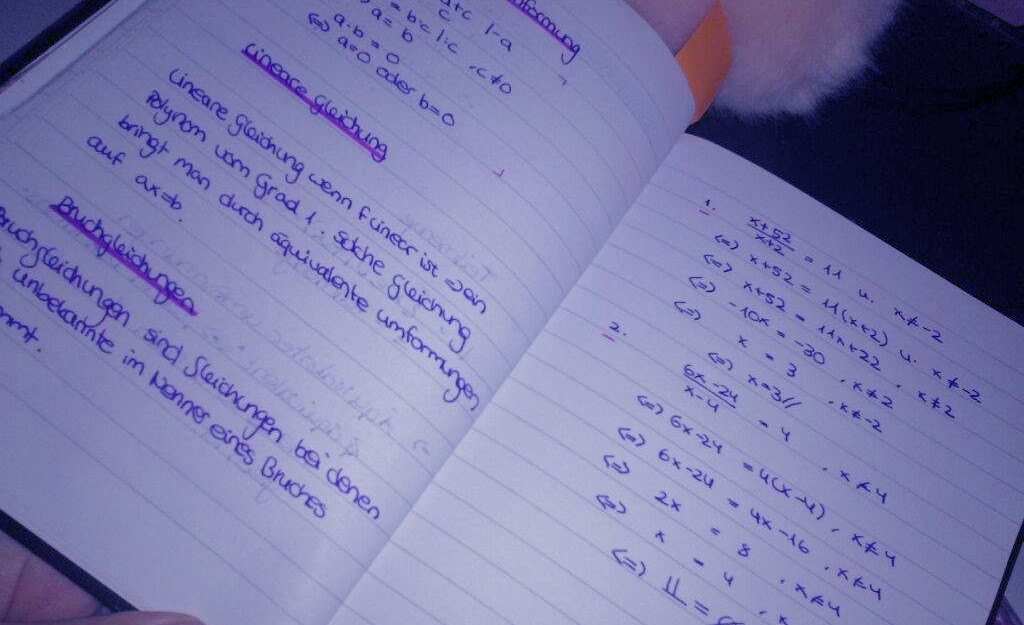 a+c | -a
c
= b·c |:c , c≠0
a = b
a·b = 0
⇔ a=0 oder b=0
Lineare Gleichung
Lineare Gleichung wenn f linear ist ⇒ ein
Polynom vom Grad 1. Solche Gleichung
bringt man durch äquivalente umformungen
auf ax=b.
Bruchgleichungen
Bruchgleichungen sind Gleichungen bei denen
unbekannte im Nenner eines Bruches
1. x+52/x+2 = 11 u. x≠-2
⇔ x+52 = 11(x+2) u. x≠-2
⇔ x+52 = 11x+22 , x≠2
⇔ -10x = -30 , x≠2
⇔ x = 3 , x≠-2
⇔ x=3//
2. 6x-24/x-4 = 4 , x≠4
⇔ 6x-24 = 4(x-4) , x≠4
⇔ 6x-24 = 4x-16 , x≠4
⇔ 2x = 8 , x≠4
⇔ x = 4 , x
⇔ 𝕃 =